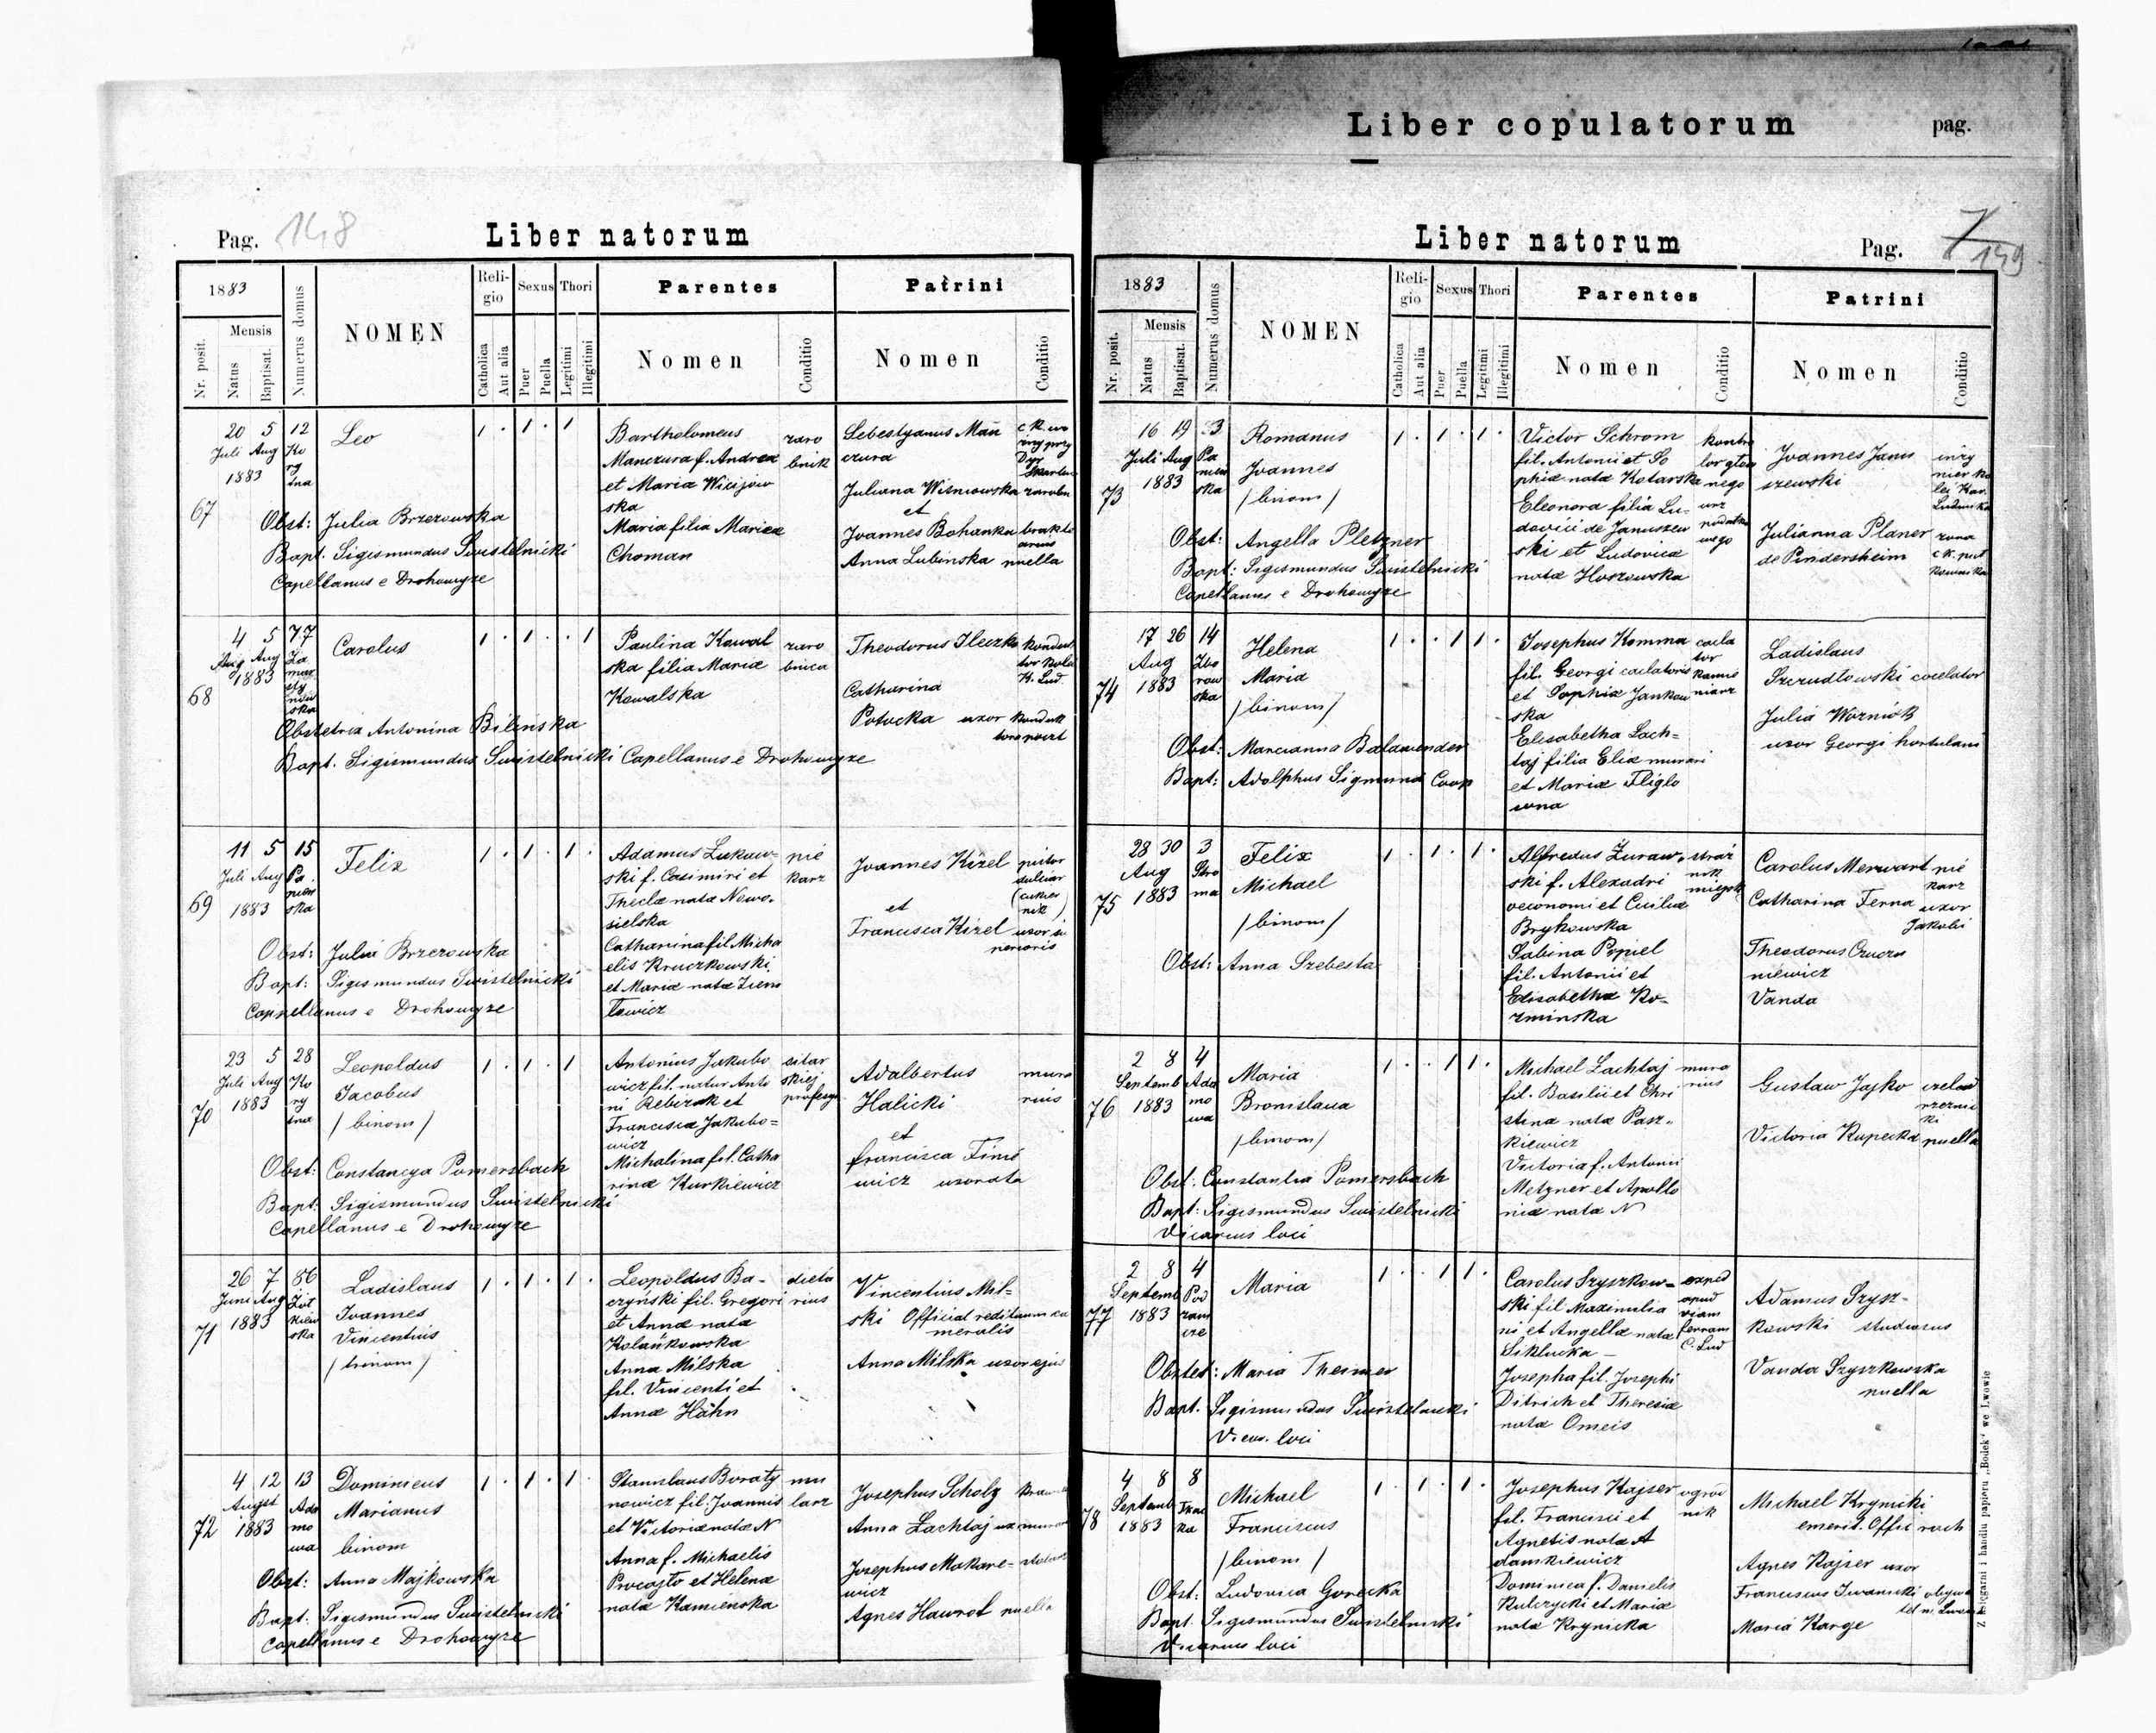 Liber copulatorum pag.
Pag. 148 Liber natorum
1883
Mensis
Nr. posit.
Natus
Baptisat.
Numerus domus
NOMEN
Religio
Catholica
Aut alia
Sexus
Puer
Puella
Thori
Legitimi
Illegitimi
Parentes
Nomen
Conditio
Patrini
Nomen
Conditio
67
20 5 12
Juli Aug
1883
Leo
1 . 1 . 1
Obst: Julia Brzezowska
Bapt. Sigismundus Swistelnicki
Capellanus e Drohowyze
Bartholomeus
Manczura f. Andreæ
et Mariæ
ska
Maria filia Mariæ
Choman
zaro
bnik
Sebestyanus Mań
czura
Juliana Wisniowska
et
Joannes Bohanka
Anna Lubinska puella
68
4 5 77
Aug Aug
1883
Carolus
1 . 1 . . 1
Obstetrix Antonina Bilinska
Bapt. Sigismundus Swistelnicki Capellanus e Drohowyze
Paulina Kowal
ska filia Mariæ
Kowalska
zaro
bnica
Theodorus Ileczko
Catharina
Potocka uxor
69
11 5 15
Juli Aug
1883
Pa
nien
ska
Felix
1 . 1 . 1 .
Obst: Julia Brzezowska
Bapt: Sigismundus Swistelnicki
Capellanus e Drohowyze
Adamus Lukaw-
ski f. Casimiri et
Theclæ natæ Nowo-
sielska
Catharina fil. Micha
elis Kruczkowski
et Mariæ natæ Ziem
lewicz
pie
karz
Joannes Kizel
et
Francisca Kizel
70
23 5 28
Juli Aug
1883
Leopoldus
Jacobus
/binom/
1 . 1 . 1
Obst: Constancya Pomersbach
Bapt: Sigismundus Swistelnicki
Capellanus e Drohowyze
Antonius Jakubo
wicz fil. natur Anto
ni Rebizak et
Franciscæ Jakubo=
wicz
Michalina fil. Catha
rinæ Kurkiewicz
Adalbertus
Halicki
mura
rius
et
Francisca Timé
wicz uxorata
71
26 7 86
Juni Aug
1883
Ladislaus
Joannes
Vincentius
/trinom/
1 . 1 . 1 .
Leopoldus Ba-
czyński fil. Gregori
et Annæ natæ
Kolańkowska
Anna Milska
fil. Vincenti et
Annæ Hähn
dieta
rius
Vincentius Mil-
ski Official
meralis
Anna Milska uxor ejus
72
4 12 13
August
1883
Ada
mo
wa
Dominicus
Marianus
binom
1 . 1 . 1
Obst: Anna Majkowska
Bapt: Sigismundus Swistelnicki
Capellanus e Drohowyze
Stanislaus Boraty
nowicz fil. Joannis
et Victoriæ natæ N
Anna f. Michaelis
Procajło et Helenæ
natæ Kamienska
mu
larz
Josephus Scholz
Anna Lachtaj
Josephus Makare-
wicz
Agnes Hawrot puella
Liber natorum
Pag. 149
1883
Mensis
Nr. posit.
Natus
Baptisat.
Numerus domus
NOMEN
Religio
Catholica
Aut alia
Sexus
Puer
Puella
Thori
Legitimi
Illegitimi
Parentes
Nomen
Conditio
Patrini
Nomen
Conditio
73
16 19 3
Juli Aug
1883
Pa
nien
ska
Romanus
Joannes
/binom/
1 . 1 . 1 .
Obst: Angella Pletzner
Bapt: Sigismundus Swistelnicki
Capellanus e Drohowyze
Victor Schrom
fil. Antonii et So
phiæ natæ Kotarska
Eleonora filia Lu-
dovici de Januszew
ski et Ludovicæ
natæ Hoszowska
Joannes Janu
szewski
Julianna Planer
de Pindersheim
74
17 26 14
Aug
1883
Zbo
row
ska
Helena
Maria
/binom/
1 . . 1 1 .
Obst: Marcianna Balamender
Bapt: Adolphus Sigmund Coop
Josephus Komma
fil. Georgi cælatoris
et Sophiæ Jankow
ska
Elisabetha Lach=
taj filia Eliæ murari
et Mariæ Fliglo
wna
Ladislaus
Szczudlowski cælator
Julia Wozniak
uxor Georgi hortulani
75
28 30 3
Aug
1883
Stro
ma
Felix
Michael
/binom/
1 . 1 . 1 .
Obst: Anna Szebesta
Alfredus Żuraw-
ski f. Alexadri
oeconomi et Ceciliæ
Brykowska
Sabina Popiel
fil. Antonii et
Elisabethæ Ko-
zminska
straż
nik
miejski
Carolus Merwart pie
karz
Catharina Ferna uxor
Jakobi
Theodorus
niewicz
Vanda
76
2 8 4
Septemb
1883
Ada
mo
wa
Maria
Bronislava
/binom/
1 . . 1 1 .
Obst: Constantia Pomersbach
Bapt: Sigismundus Swistelnicki
Vicarius loci
Michael Lachtaj
fil. Basilii et Chri
stinæ natæ Pasz-
kiewicz
Victoria f. Antonii
Metzner et Apollo
niæ natæ N
mura
rius
Gustaw Jajko
Victoria Kupecka puella
77
2 8 4
Septemb
1883
Pod
zam
cze
Maria
1 . . 1 1 .
Obstet: Maria Theimer
Bapt. Sigismundus Swistelnicki
Vicar. loci
Carolus Szyszkow-
ski fil Maximilia
ni et Angellæ natæ
Siklucka
Josepha fil. Josephi
Ditrich et Theresiæ
natæ Omeis
exped
apud
viam
ferream
C. Lud
Adamus Szysz-
kowski studiosus
Vanda Szyszkowska
puella
78
4 8 8
Septemb
1883
Michael
Franciscus
/binom/
1 . 1 . 1 .
Obst: Ludovica Gorecka
Bapt. Sigismundus Swistelnicki
Vicarius loci
Josephus Kajser
fil. Francisci et
Agnetis natæ A
damkiewicz
Dominica f. Danielis
Kulczycki et Mariæ
natæ Krynicka
ogrod
nik
Michael Krynicki
emerit. Offic rach
Agnes Kajser uxor
Franciscus Iwanicki
Maria Karge
Z księgarni i handlu papieru „Bodek“ we Lwowie